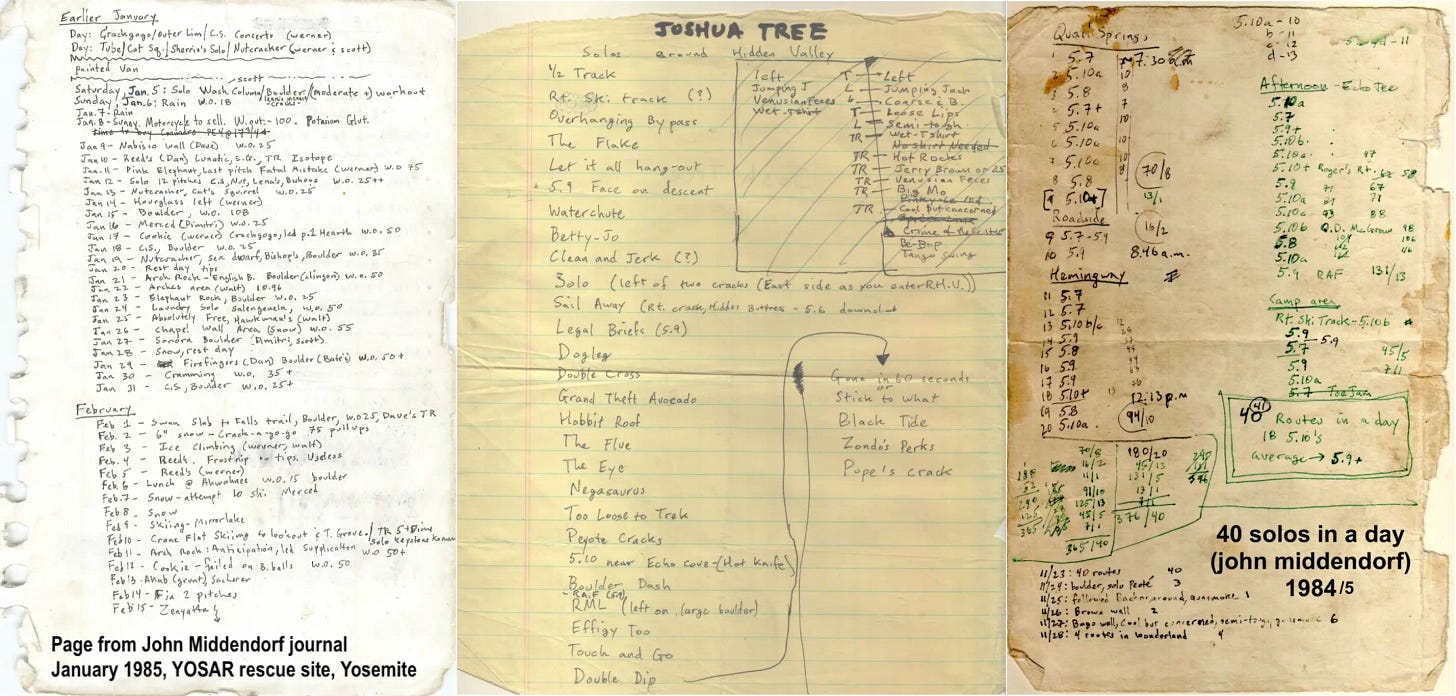 Earlier January
Day: Grachgogo/Outer Lim/C.S. Concerto (werner)
Day: Tube/Cat Sq./Sherrie's Solo/Nutcracker (werner & scott)
painted Van
scott
Saturday, Jan. 5: Solo Wash Column/Boulder/(moderate+) workout
Sunday, Jan. 6: Rain W.O. 18
Jan. 7 - Rain
Jan. 8 - Sunny. Motorcycle to sell. W.out-100. Potanum Glut.
Jan 9 - Nabisco wall (Dave) W.O. 25
Jan 10 - Reed's (Dan) Lunatic, S.G., TR Isotope
Jan. 11 - Pink Elephant, Last pitch Fatal Mistake (werner) W.O 75
Jan 12 - Solo 12 pitches C.S, Nut, Lena's, Bishops W.O. 25++
Jan 13 - Nutcracker, Cat's Squirrel W.O. 25
Jan 14 - Hourglass left (werner)
Jan 15 - Boulder, W.O. 108
Jan 16 - Merced (Dimitri) W.O. 25
Jan 17 - Cookie (werner) Crackgogo, led p.1 Hearth W.O. 50
Jan 18 - C.S., Boulder W.O. 25
Jan 19 - Nutcracker, sex dwarf, Bishop's, Boulder W.O. 35
Jan 20 - Rest day tips
Jan 21 - Arch Rock - English B. Boulder (clingon) W.O. 50
Jan 22 - Arches area (walt) 10.96
Jan 23 - Elephant Rock, Boulder W.O. 25
Jan 24 - Laundry Solo W.O. 50
Jan 25 - Absolutely Free, Hawkman's (walt)
Jan 26 - Chapel Wall Area (Snow) W.O. 55
Jan 27 - Sondra Boulder (Dimitri, scott)
Jan 28 - Snow, rest day
Jan 29 - Firefingers (Dan) Boulder (Bate's) W.O. 50+
Jan 30 - Cramming W.O. 35+
Jan 31 - C.S., Boulder W.O. 25+
February
Feb 1 - Swan Slab to Falls trail, Boulder, W.O 25, Dave's TR
Feb. 2 - 6" snow - Crack-a-go-go 75 pullups
Feb 3 - Ice Climbing (werner, walt)
Feb. 4 - Reed's, Frostnip on tips. Useless
Feb 5 - Reed's (werner)
Feb. 6 - Lunch @ Ahwahnee W.O. 15 boulder
Feb. 7 - Snow-attempt to ski Merced
Feb 8 - Snow
Feb 9 - Skiing - Mirrorlake
Feb 10 - Crane Flat Skiing to lookout & T. Grove / TR 5+Dime
Solo Keystone Korner
Feb 11 - Arch Rock: Anticipation, led Supplication W.O 50+
Feb 12 - Cookie - failed on B. balls W.O. 50
Feb 13 - Ahab (grunt), Sacherer
Feb 14 - Fix 2 pitches
Feb 15 - Zenyatta
Page from John Middendorf journal
January 1985, YOSAR rescue site, Yosemite
JOSHUA TREE
Solos around Hidden Valley
1/2 Track
Rt. Ski track (?)
Overhanging Bypass
The Flake
Let it all hang-out
5.9 Face on descent
Waterchute
Betty-Jo
Clean and Jerk (?)
Solo (left of two cracks (East side as you enter R.H.V.))
Sail Away (Rt. crack, Hidden Buttress - 5.6 downclimb
Legal Briefs (5.9)
Dogleg
Double Cross
Grand Theft Avocado
Hobbit Roof
The Flue
The Eye
Negasaurus
Too Loose to Trek
Peyote Cracks
5.10 near Echo cove - (Hot Knife)
Boulder Dash
- R.A.F (5.9)
RML (left on large boulder)
Effigy Too
Touch and Go
Double Dip
left
Jumping J
Venusian Feces
Wet-T shirt
T - Left
L - Jumping Jack
6 - Coarse & B.
T - Loose Lips
L - Semi-tough
TR - Wet-T shirt
No shirt Needed
TR - Hot Rocks
TR - Jerry Brown
TR - Venusian Feces
TR - Big Mo
Pinky Lee 10d
TR - Cool but concerned
Be-Bop
Tango swing
Gone in 60 seconds
or
Stick to What
Black Tide
Zondo's Perks
Pope's crack
Quail Springs
1 5.7
7:30 a.m
2 5.10a 10
3 5.8 8
4 5.7+ 7
5 5.10a 10
6 5.10a 10
7 5.10a 10
8 5.8 8
70/8
[9 5.10+]
13/1
Roadside
9 5.7-5.9
16/2
10 5.9 8:46 a.m.
Hemingway
11 5.7
12 5.7
13 5.10b/c
14 5.9
15 5.8
16 5.9
17 5.9
18 5.10+ 12:13 p.m
19 5.8
20 5.10a
94/10
5.10a - 10
b - 11
c - 12
d - 13
Afternoon - Echo Tee
5.10a
5.7
5.9+
5.10b
5.10a
5.10+ Roger's Rt.
5.8
5.10a
5.10a
5.10b Q.D. McGrow
5.8
5.10a
5.9 RAF 131/13
Camp area
Rt. Ski Track - 5.10b
5.9
5.7 - 5.9
5.9
5.10a
5.7 Toe Jam
45/5
7/1
40 (41) Routes in a day
18 5.10's
average → 5.9+
70/8
16/2
11/1
91/10
125/13
45/5
7/1
365/40
180/20
45/13
131/5
13/1
7/1
376/40
40 solos in a day
(john middendorf)
1984/5
11/23: 40 routes 40
11/24: boulder, solo Peoté 3
11/25: followed Bachar around, gunsmoke 1
11/26: Brown wall 2
11/27: Bago wall, Cool but concerned, semi-tough, gunsmoke 6
11/28: 4 routes in wonderland 4